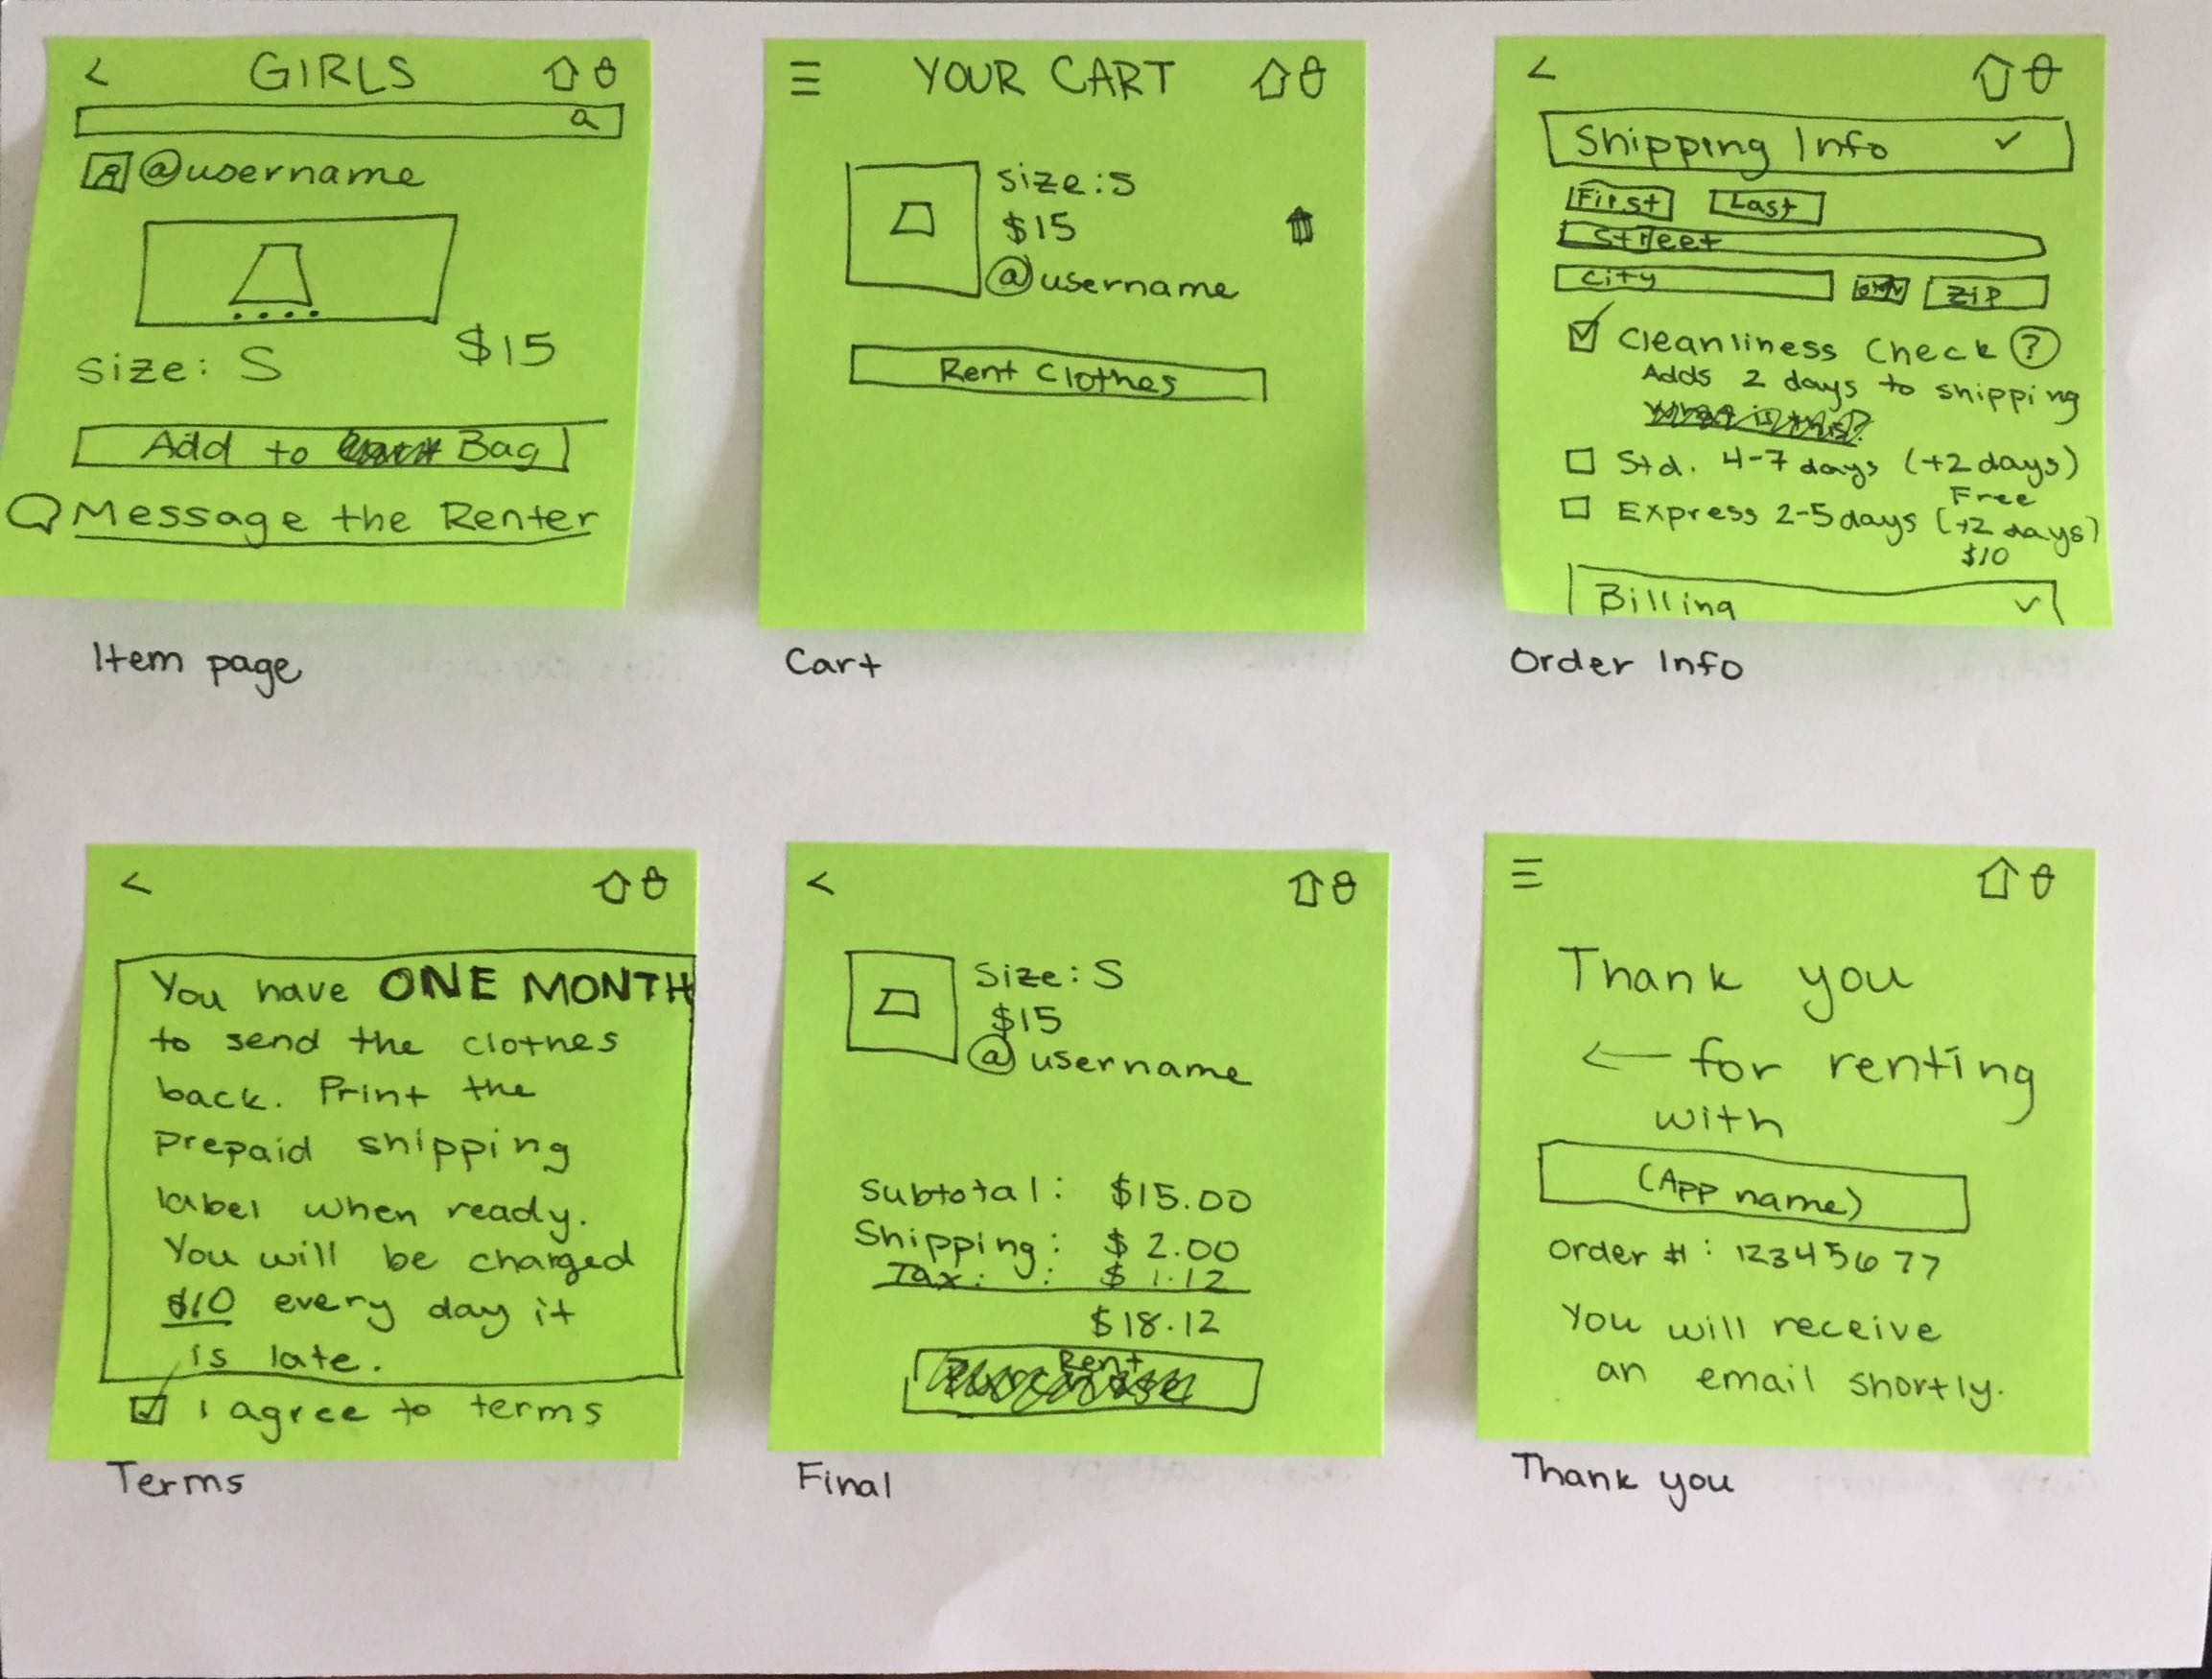 GIRLS
@username
$15
Size: S
Add to Bag
Message the Renter
Item page
YOUR CART
Size: S
$15
@username
Rent Clothes
Cart
Shipping Info
First Last
Street
City ZIP
Cleanliness Check ?
Adds 2 days to shipping
Std. 4-7 days (+2 days)
Free
Express 2-5 days (+2 days)
$10
Billing
Order Info
You have ONE MONTH
to send the clothes
back. Print the
prepaid shipping
label when ready.
You will be charged
$10 every day it
is late.
I agree to terms
Terms
Size: S
$15
@username
Subtotal: $15.00
Shipping: $2.00
Tax: : $1.12
$18.12
Rent
Final
Thank you
for renting
with
(App name)
Order #: 12345677
You will receive
an email shortly.
Thank you